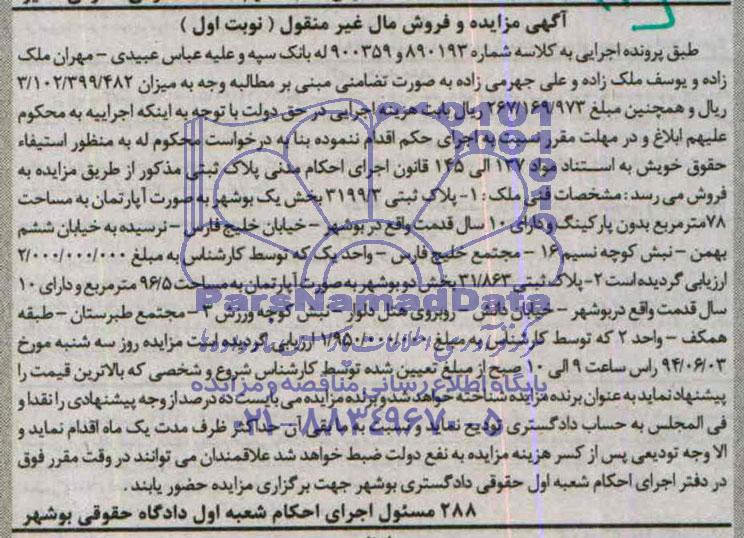 آگهی مزایده و فروش مال غیر منقول ( نوبت اول )
طبق پرونده اجرایی به کلاسه شماره ۸۹۰۱۹۳ و ۹۰۰۳۵۹ له بانک سپه و علیه عباس عبیدی - مهران ملک
زاده و یوسف ملک زاده و علی جهرمی زاده به صورت تضامنی مبنی بر مطالبه وجه به میزان ۳/۱۰۲/۳۹۹/۴۸۲
ریال و همچنین مبلغ ۲۶۷/۱۶۹/۹۷۳ ریال بابت هزینه اجرایی در حق دولت با توجه به اینکه اجراییه به محکوم
علیهم ابلاغ و در مهلت مقرر نسبت به اجرای حکم اقدام ننموده بنا به درخواست محکوم له به منظور استیفاء
حقوق خویش به استناد مواد ۱۳۷ الی ۱۴۵ قانون اجرای احکام مدنی پلاک ثبتی مذکور از طریق مزایده به
فروش می رسد : مشخصات فنی ملک : ۱- پلاک ثبتی ۳۱۹۹/۳ بخش یک بوشهر به صورت آپارتمان به مساحت
۷۸ مترمربع بدون پارکینگ و دارای ۱۰ سال قدمت واقع در بوشهر - خیابان خلیج فارس - نرسیده به خیابان ششم
بهمن - نبش کوچه نسیم ۱۶ - مجتمع خلیج فارس - واحد یک که توسط کارشناس به مبلغ ۲/۰۰۰/۰۰۰/۰۰۰
ارزیابی گردیده است ۲- پلاک ثبتی ۳۱/۸۶۳ بخش دو بوشهر به صورت آپارتمان به مساحت ۹۶/۵ مترمربع و دارای ۱۰
سال قدمت واقع دربوشهر - خیابان دانش - روبروی هتل دلوار - نبش کوچه ورزش ۳ - مجتمع طبرستان - طبقه
همکف - واحد ۲ که توسط کارشناس به مبلغ ۱/۹۵۰/۰۰۰/۰۰۰ ارزیابی گردیده است مزایده روز سه شنبه مورخ
۹۴/۰۶/۰۳ راس ساعت ۹ الی ۱۰ صبح از مبلغ تعیین شده توسط کارشناس شروع و شخصی که بالاترین قیمت را
پیشنهاد نماید به عنوان برنده مزایده شناخته خواهد شد و برنده مزایده می بایست ده درصد از وجه پیشنهادی را نقدا و
فی المجلس به حساب دادگستری تودیع نماید و نسبت به مابقی آن حداکثر ظرف مدت یک ماه اقدام نماید و
الا وجه تودیعی پس از کسر هزینه مزایده به نفع دولت ضبط خواهد شد علاقمندان می توانند در وقت مقرر فوق
در دفتر اجرای احکام شعبه اول حقوقی دادگستری بوشهر جهت برگزاری مزایده حضور یابند .
۲۸۸ مسئول اجرای احکام شعبه اول دادگاه حقوقی بوشهر
ParsNamadData
پایگاه اطلاع رسانی مناقصه و مزایده
۰۲۱-۸۸۳۴۹۶۷۰-۵